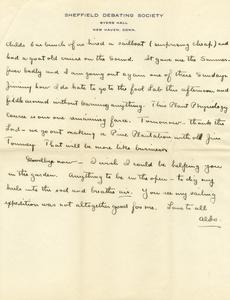 SHEFFIELD DEBATING SOCIETY
BYERS HALL
NEW HAVEN, CONN.
Childs & a bunch of us hired a sailboat (surprising cheap) and
had a great old cruise on the Sound. It gave me the Summer-
fever badly and I am going out again one of these Sundays
Jimminy how I do hate to go to the fool Lab this afternoon and
fiddle around without learning anything. This Plant Physiology
course is our one remaining farce. Tomorrow - thank the
Lord - we go out making a Pine Plantation with old Jim
Toumey. That will be more like business.
Goodbye now - I wish I could be helping you
in the garden. Anything to be in the open - to dig my
heels into the sod and breathe air. You see my sailing
expedition was not altogether good for me. Love to all
Aldo.